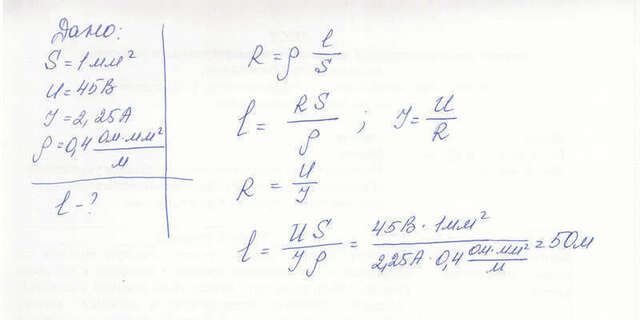 Дано:
S = 1 мм²
U = 45В
I = 2,25А
ρ = 0,4 Ом·мм²/м
l - ?
R = ρ l/S
l = RS/ρ ; I = U/R
R = U/I
l = US/Iρ = 45В · 1мм² / 2,25А · 0,4 Ом·мм²/м = 50м